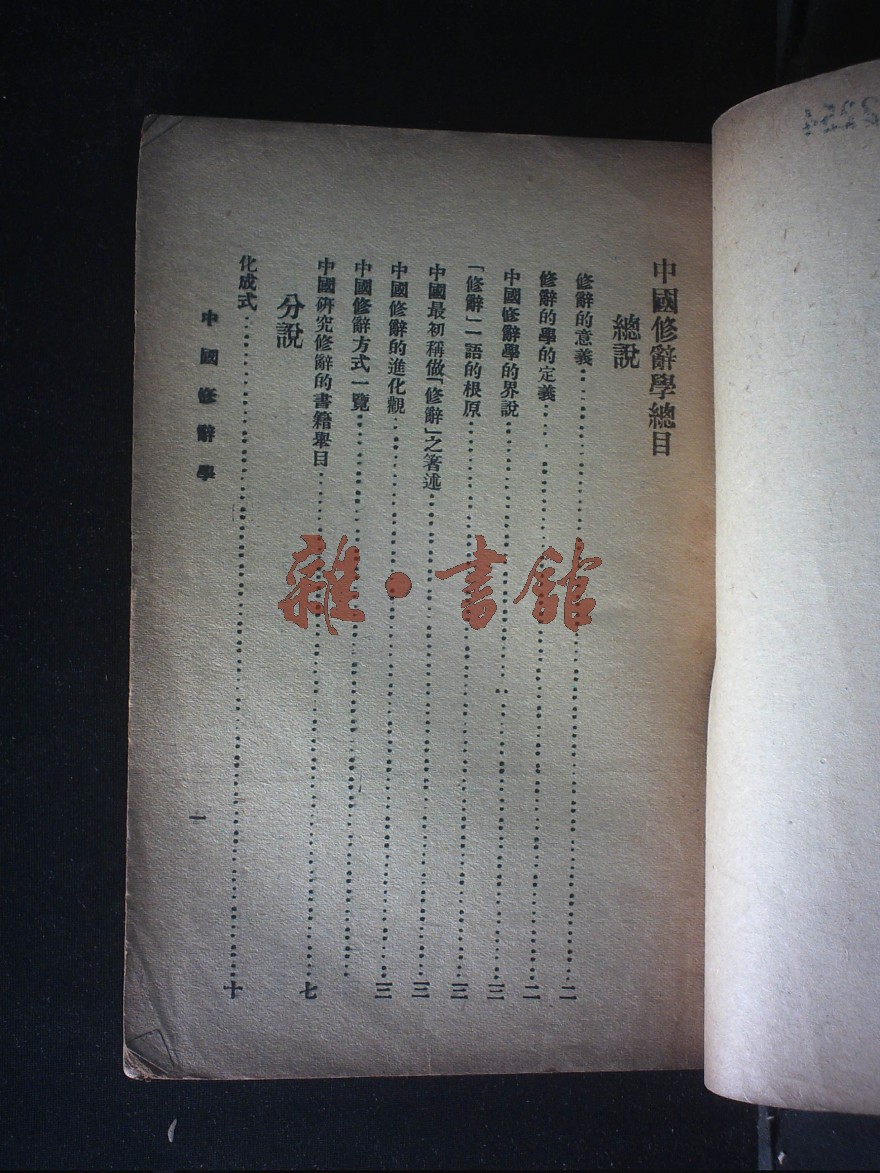 中國修辭學總目
總說
修辭的意義……二
修辭的學的定義……二
中國修辭學的界說……三
「修辭」一語的根原……三
中國最初稱做「修辭」之箸述……三
中國修辭的進化觀……三
中國修辭方式一覽……
中國研究修辭的書籍舉目……七
分說
化成式……十
中國修辭學
一
雜·書館